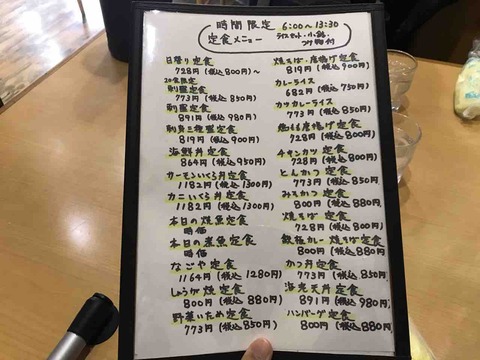 時間限定 6:00〜13:30
定食メニュー ライスセット・小鉢・つけ物付
日替り定食
728円(税込800円)〜
20食限定
刺身定食
773円(税込850円)
刺盛定食
891円(税込980円)
刺身三種盛定食
819円(税込900円)
海鮮丼定食
864円(税込950円)
サーモンいくら丼定食
1182円(税込1300円)
カニいくら丼定食
1182円(税込1300円)
本日の焼魚定食
時価
本日の煮魚定食
時価
なごや定食
1164円(税込1280円)
しょうが焼定食
800円(税込880円)
野菜いため定食
773円(税込850円)
焼そば・唐揚げ定食
819円(税込900円)
カレーライス
682円(税込750円)
カツカレーライス
773円(税込850円)
唐揚げ定食
728円(税込800円)
チキンカツ定食
728円(税込800円)
とんかつ定食
773円(税込850円)
みそかつ定食
800円(税込880円)
焼そば定食
728円(税込800円)
鉄板カレー焼そば定食
800円(税込880円)
かつ丼定食
773円(税込850円)
海老天丼定食
891円(税込980円)
ハンバーグ定食
800円(税込880円)